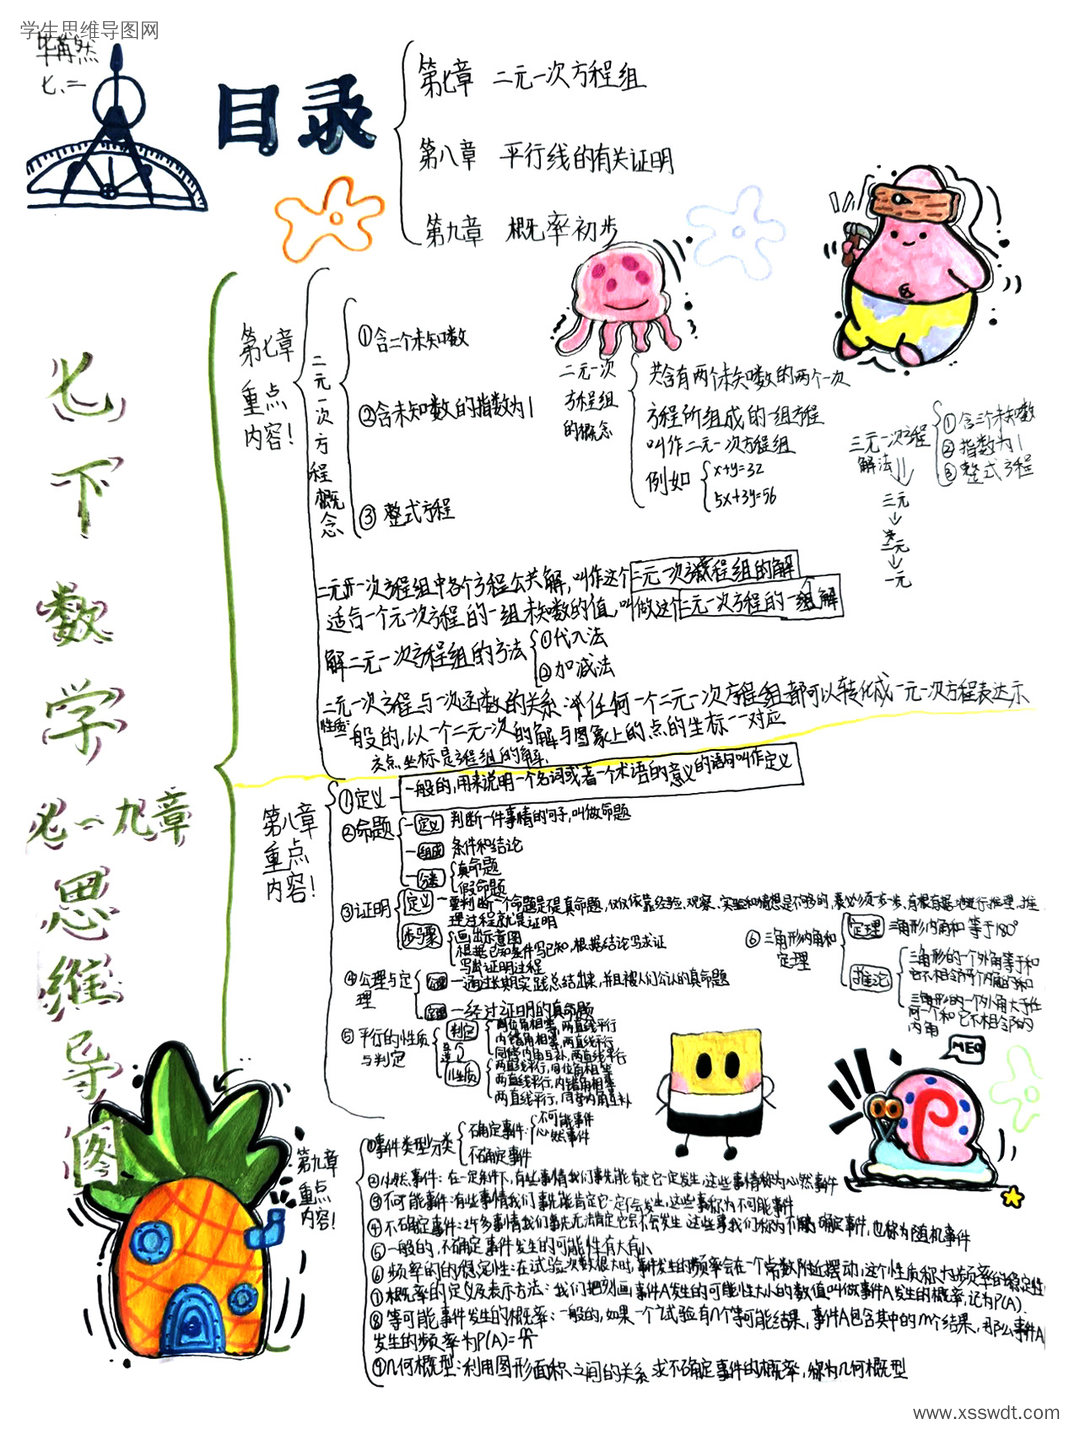 学生思维导图网
七、二
目录
第七章 二元一次方程组
第八章 平行线的有关证明
第九章 概率初步
七下数学七一九章思维导图
第七章
重点
内容！
二元一次方程概念
①含二个未知数
②含未知数的指数为1
③整式方程
二元一次
方程组
的概念
共含有两个未知数的两个一次
方程所组成的一组方程
叫作二元一次方程组
例如
x+y=32
5x+3y=56
三元一次方程
解法
①含三个未知数
②指数为1
③整式方程
三元
二元
一元
二元一次方程组中各个方程公共解，叫作这个二元一次方程组的解
适合一个元一次方程的一组未知数的值，叫做这个二元一次方程的一组解
解二元一次方程组的方法
①代入法
②加减法
二元一次方程与一次函数的关系：任何一个二元一次方程组都可以转化成一元一次方程表达示
性质：一般的，以一个二元一次的解与图象上的点的坐标一一对应
交点坐标是方程组的解.
第八章
重点
内容！
①定义 一般的，用来说明一个名词或者一个术语的意义的语句叫作定义
②命题
定义 判断一件事情的句子，叫做命题
组成 条件和结论
分类
真命题
假命题
③证明
定义 要判断一个命题是不是真命题，仅仅依靠经验、观察、实验和猜想是不够的，
理过程就是证明
步骤
画出示意图
根据已知条件写已知，根据结论写求证
写出证明过程
④公理与定理
公理 一通过长期实践总结出来，并且被人们公认的真命题
定理 一经过证明的真命题
⑤平行的性质与判定
判定
同位角相等，两直线平行
内错角相等，两直线平行
同旁内角互补，两直线平行
性质
两直线平行，同位角相等
两直线平行，内错角相等
两直线平行，同旁内角互补
⑥三角形内角和定理
定理 三角形内角和等于180°
推论
三角形的一个外角等于和
它不相邻的两个内角的和
三角形的一个外角大于任
何一个和它不相邻的
内角
MEO
第九章
重点
内容！
①事件类型分类
确定事件：
不可能事件
必然事件
不确定事件
②必然事件：在一定条件下，有些事情我们事先能肯定它一定发生，这些事情称为必然事件
③不可能事件：有些事情我们事先能肯定它一定不会发生，这些事称为不可能事件
④不确定事件：许多事情我们事先无法肯定它会不会发生，这些事我们称为不确定事件，也称为随机事件
⑤一般的，不确定事件发生的可能性有大有小
⑥频率的稳定性：在试验次数很大时，事件发生的频率会在一个常数附近摆动，这个性质称为频率的稳定性
⑦概率的定义及表示方法：我们把刻画事件A发生的可能性大小的数值叫做事件A发生的概率，记为P(A).
⑧等可能事件发生的概率：一般的，如果一个试验有n个等可能结果，事件A包含其中的m个结果，那么事件A
发生的频率为P(A)=
⑨几何概型：利用图形面积之间的关系求不确定事件的概率，称为几何概型
www.xsswdt.com